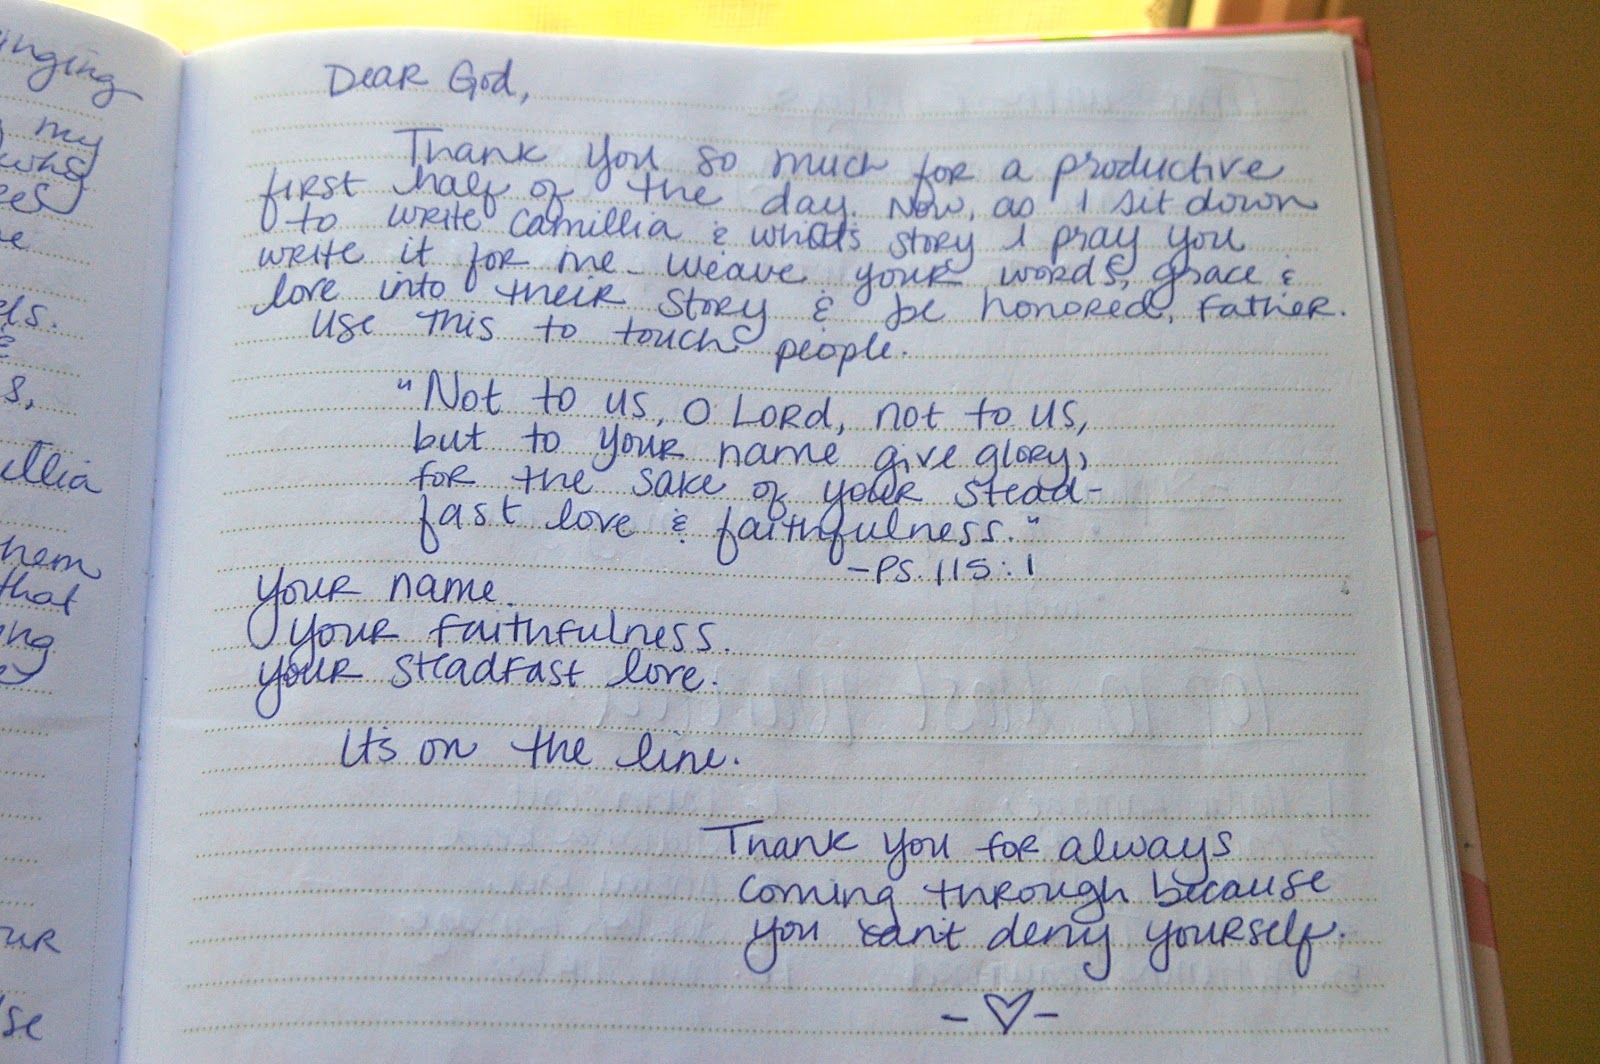 my
s,
illia
hem
that
ng
UR
se
Dear God,
Thank you so much for a productive
first half of the day. Now, as I sit down
to write Camillia & story I pray you
write it for me - weave your words, grace &
love into their story & be honored, Father.
Use this to touch people.
"Not to us, O Lord, not to us,
but to your name give glory,
for the sake of your stead-
fast love & faithfulness."
-PS. 115:1
Your name.
Your faithfulness.
Your steadfast love.
It's on the line.
Thank you for always
coming through because
you can't deny yourself.
-♡-